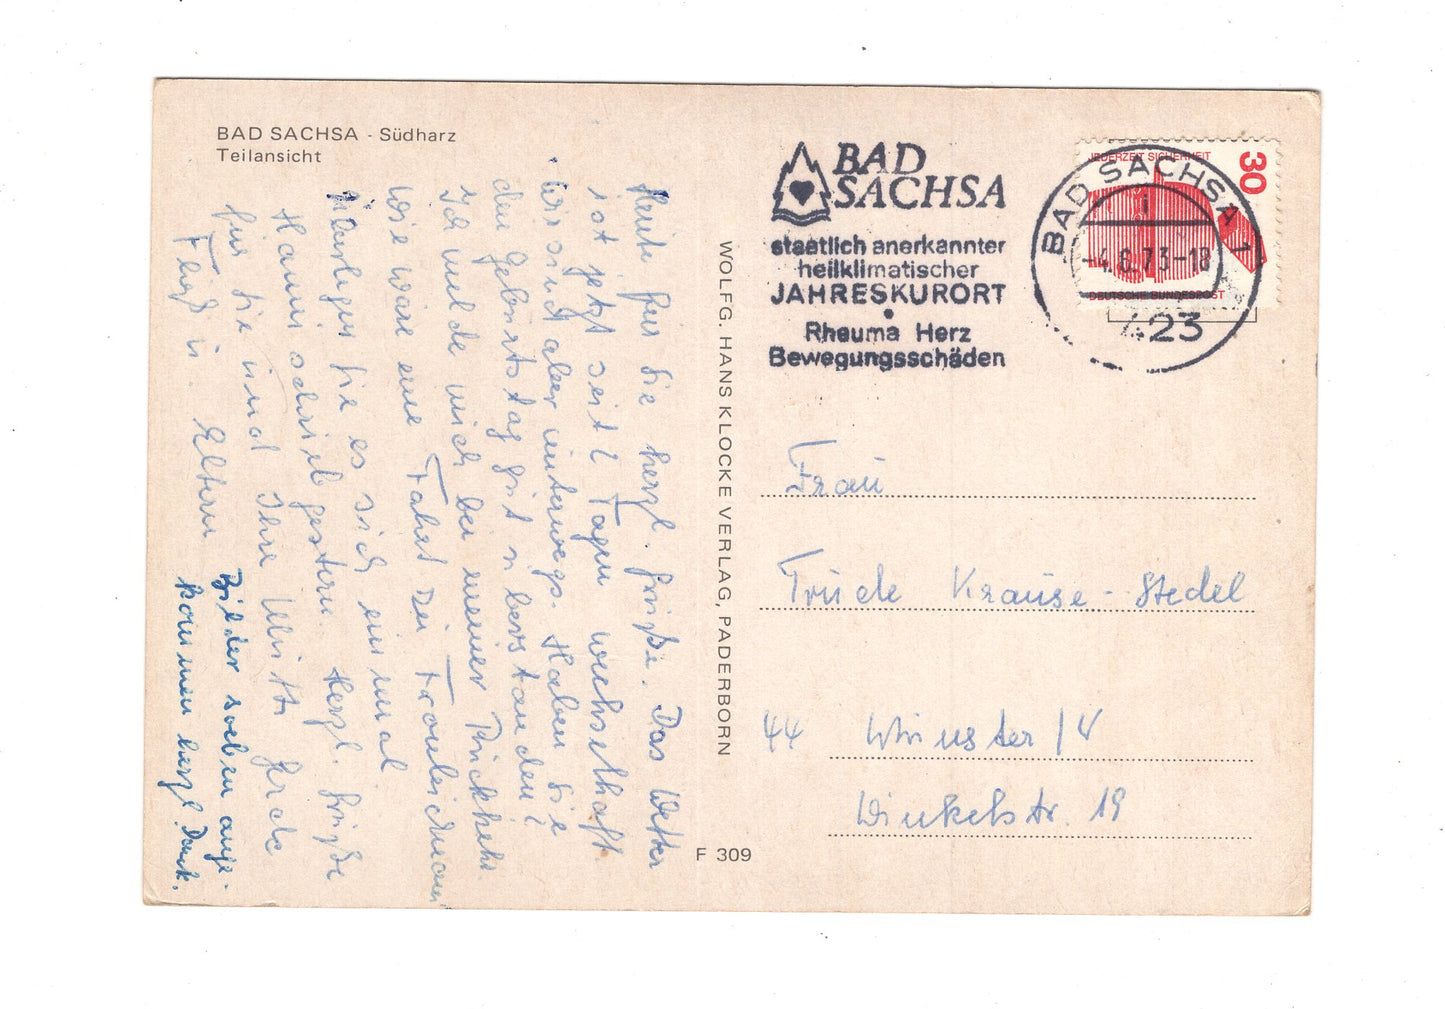 BAD SACHSA - Südharz
Teilansicht
Heute für Sie herzl. Grüße. Das Wetter
ist jetzt seit 2 Tagen wechselhaft.
Wir sind aber unterwegs. Haben Sie
den Geburtstag gut überstanden?
Ich melde mich bei meiner Rückkehr.
Wie wäre eine Fahrt zu
Überlegen Sie es sich einmal
Hanni schrieb gestern. Herzl. Grüße
für Sie und Ihre Gerda
Eltern
Bilder soeben ange-
kommen herzl. Dank.
WOLFG. HANS KLOCKE VERLAG, PADERBORN
F 309
BAD
SACHSA
staatlich anerkannter
heilklimatischer
JAHRESKURORT
Rheuma Herz
Bewegungsschäden
JEDERZEIT SICHERHEIT
30
DEUTSCHE BUNDESPOST
BAD SACHSA 1
i
-4.6.73-18
423
Frau
Trude Krause-Stedel
44 Münster/W
Winkelstr. 19